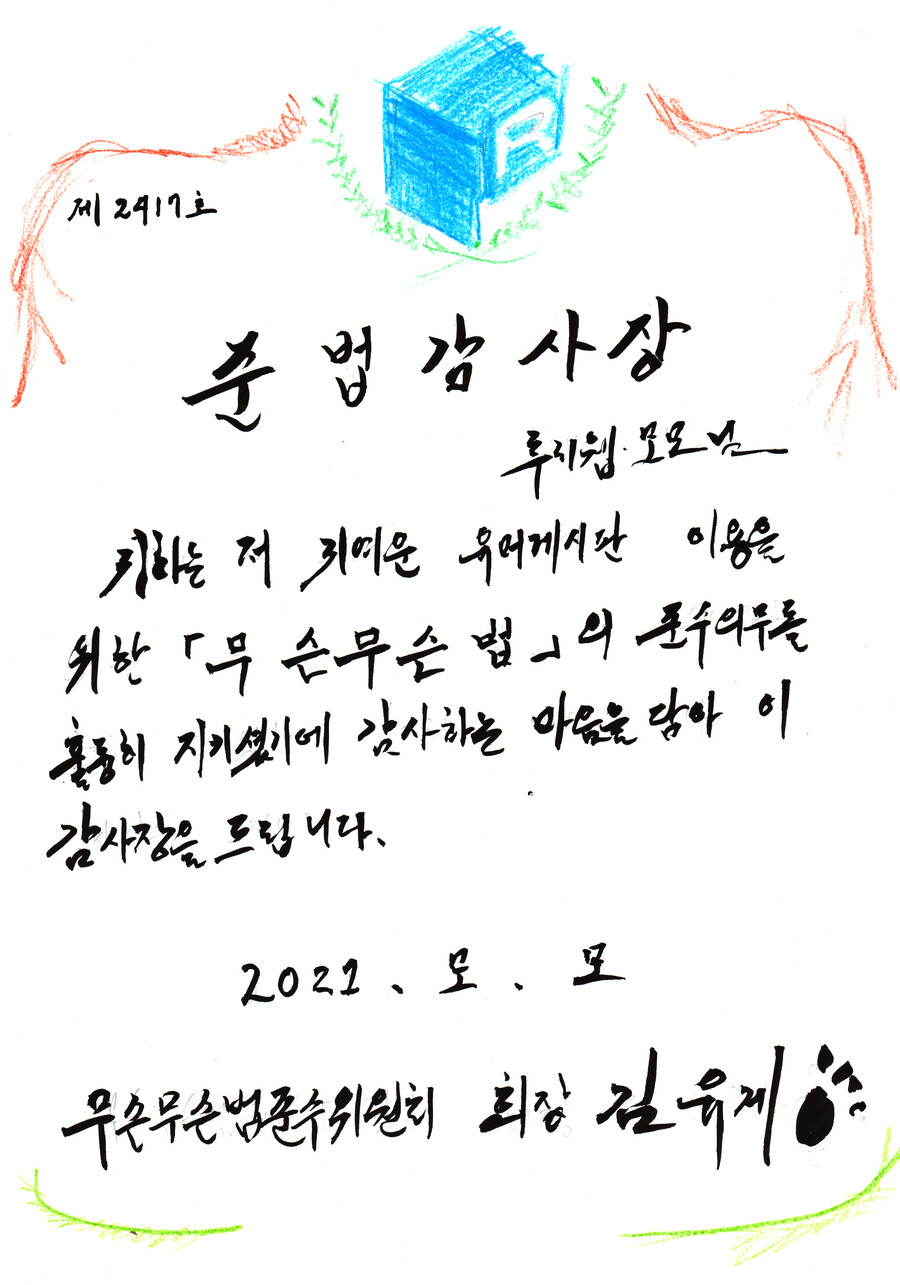 R
제 2417호
준법감사장
루지웹·모모님
귀하는 저 귀여운 유머게시판 이용을
위한 「무슨무슨법」의 준수의무를
훌륭히 지키셨기에 감사하는 마음을 담아 이
감사장을 드립니다.
2021. 모. 모
무슨무슨법준수위원회 회장 김유게